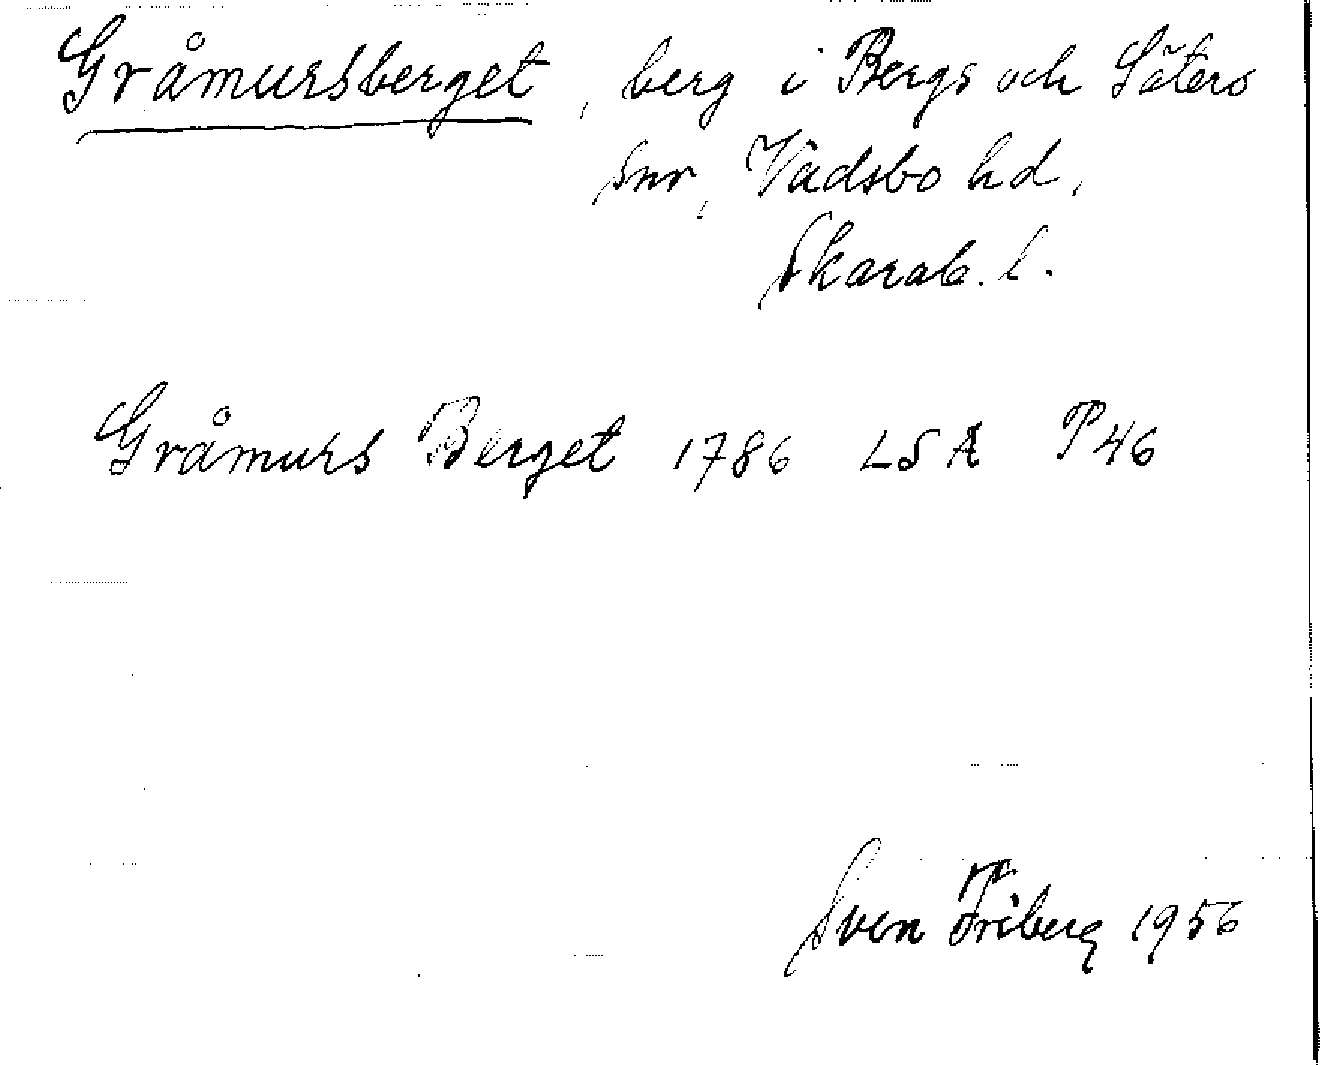 Gråmursberget, berg i Bergs och Säters
snr, Vadsbo hd,
Skarab. l.
Gråmurs Berget 1786 LSA P46
Sven Friberg 1956